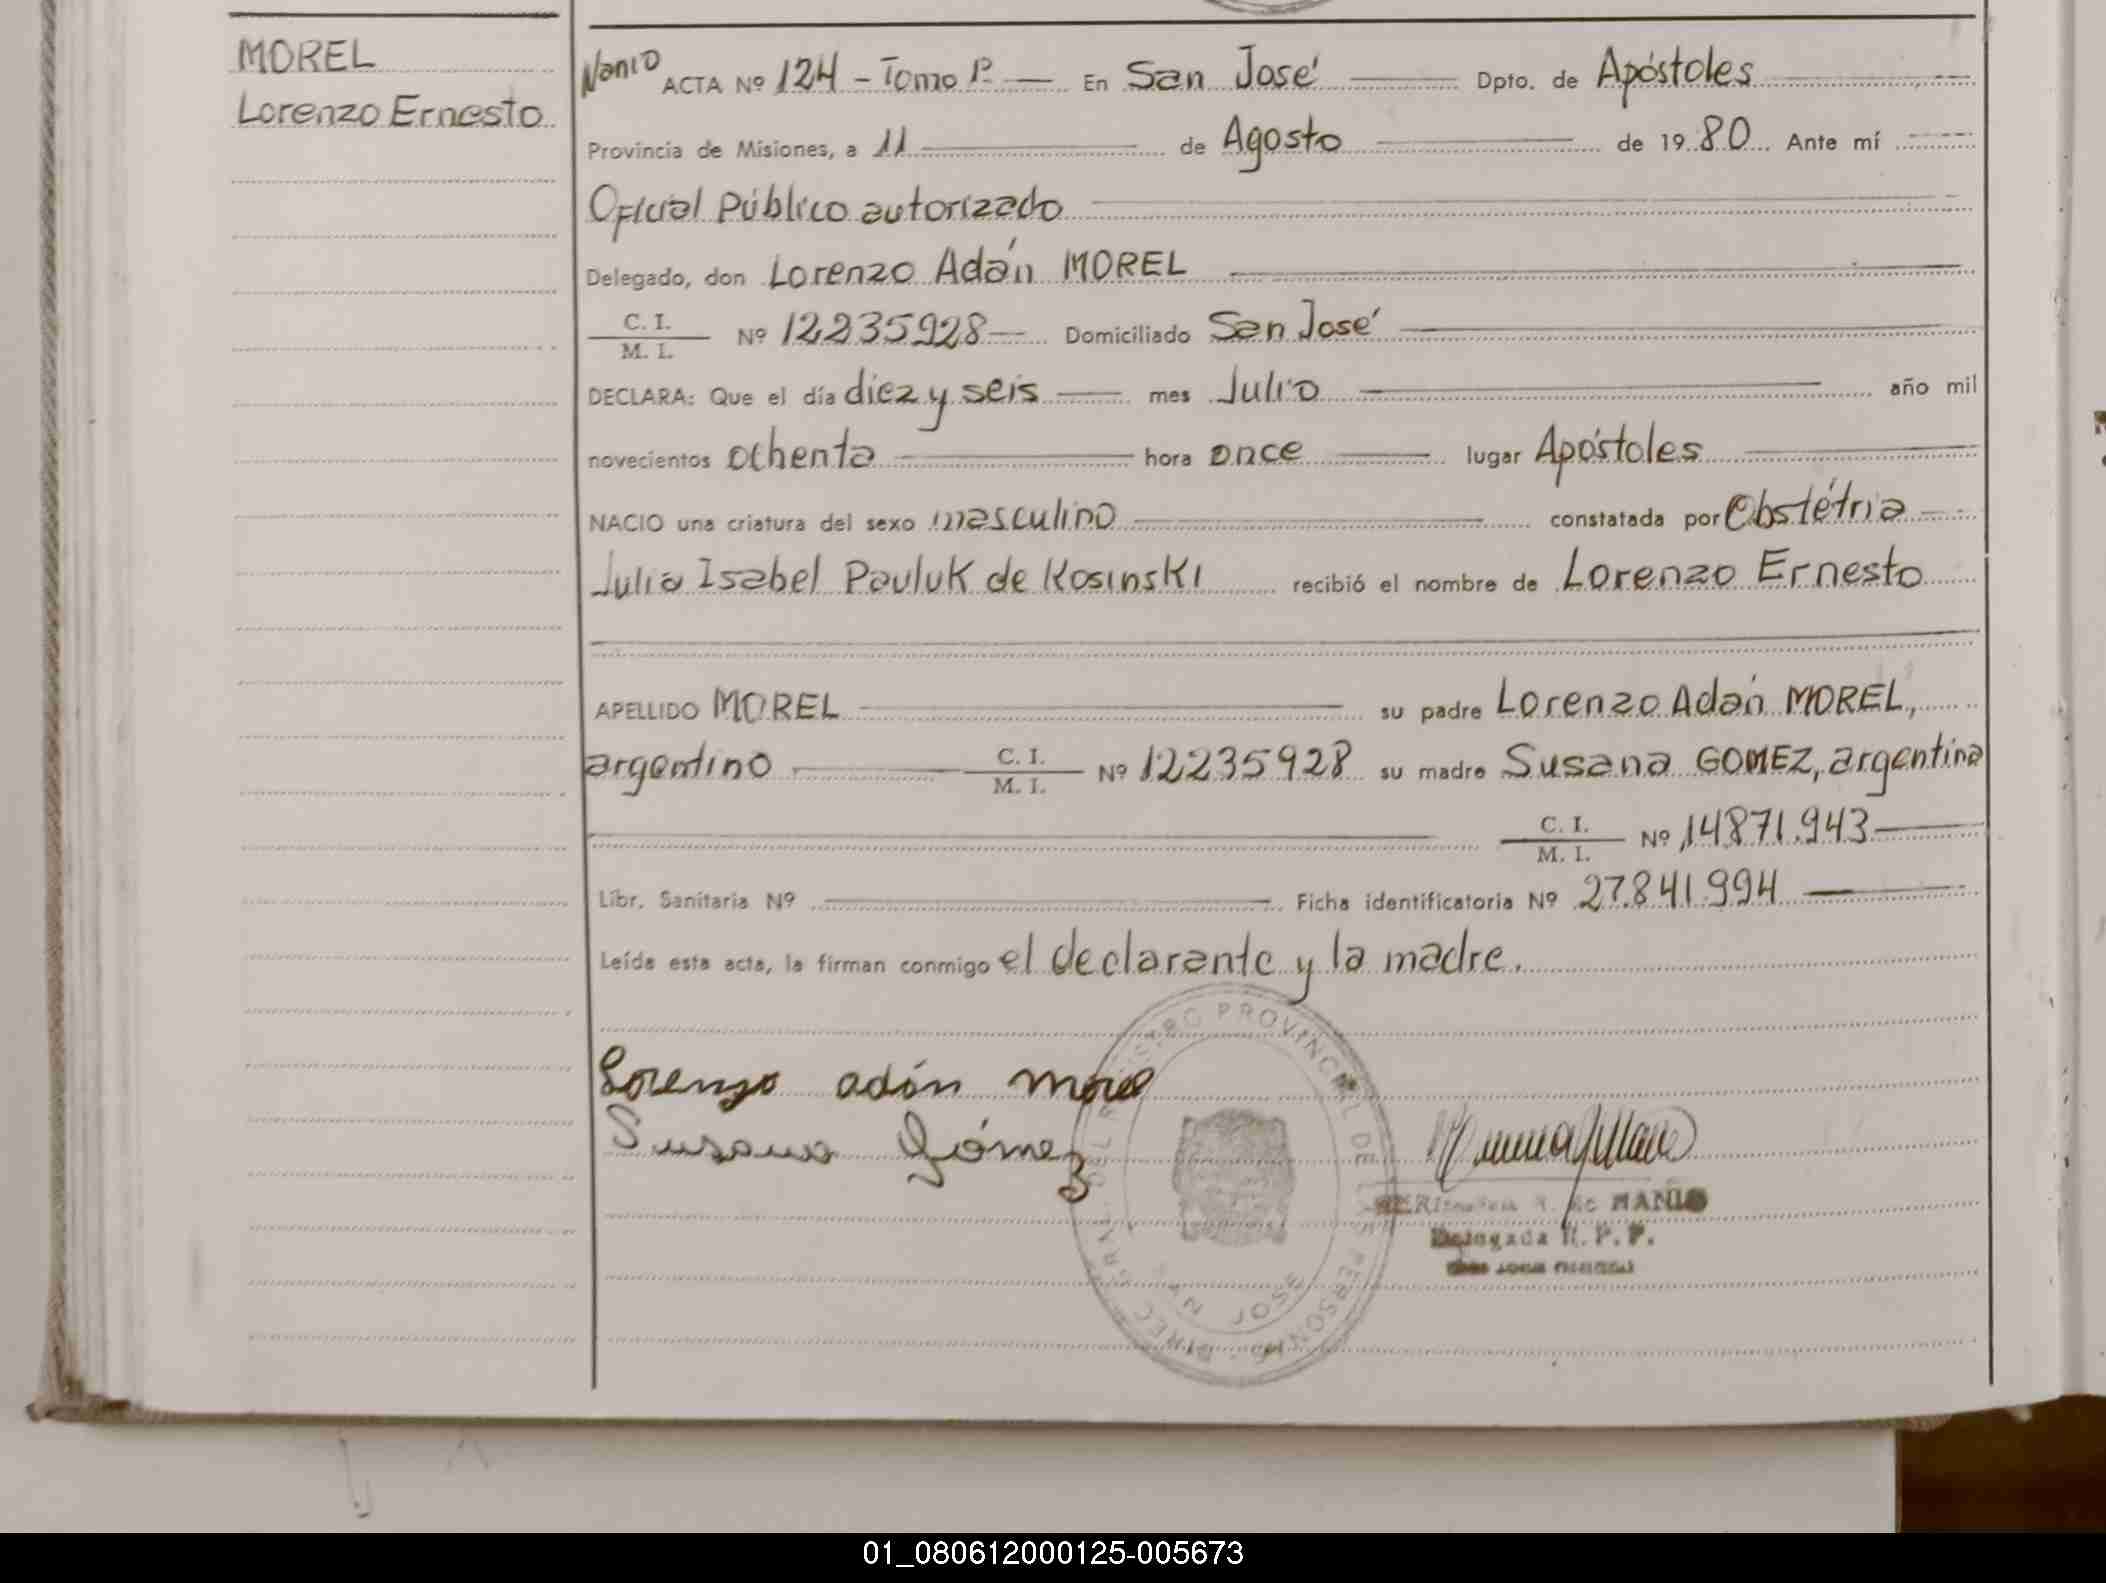 MOREL
Lorenzo Ernesto
Nanio ACTA Nº 124 - Tomo 1º En San José Dpto. de Apóstoles
Provincia de Misiones, a 11 de Agosto de 1980 Ante mí
Oficial Público autorizado
Delegado, don Lorenzo Adán MOREL
C. I. / M. I. Nº 12235928 Domiciliado San José
DECLARA: Que el día diez y seis mes Julio año mil
novecientos ochenta hora once lugar Apóstoles
NACIO una criatura del sexo masculino constatada por Obstétria
Julia Isabel Pauluk de Kosinski recibió el nombre de Lorenzo Ernesto
APELLIDO MOREL su padre Lorenzo Adán MOREL,
argentino C. I. / M. I. Nº 12235928 su madre Susana GOMEZ, argentina
C. I. / M. I. Nº 14871.943
Libr. Sanitaria Nº Ficha identificatoria Nº 27.841.994
Leída esta acta, la firman conmigo el declarante y la madre.
Lorenzo adán Morel
Susana Gómez
PROVINCIAL DE LAS PERSONAS
SAN JOSE
de NANIO
Delegada R. P. P.
01_080612000125-005673